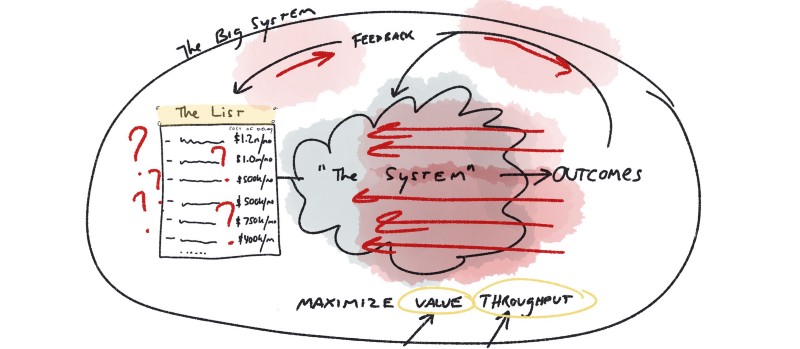 The Big System
FEEDBACK
The List
COST OF DELAY
- $1.2m/mo
- $1.0m/mo
- $500k/mo
- $500k/mo
- $750k/mo
- $400k/m
......
"The System"
OUTCOMES
MAXIMIZE VALUE THROUGHPUT
? ? ? ? ?